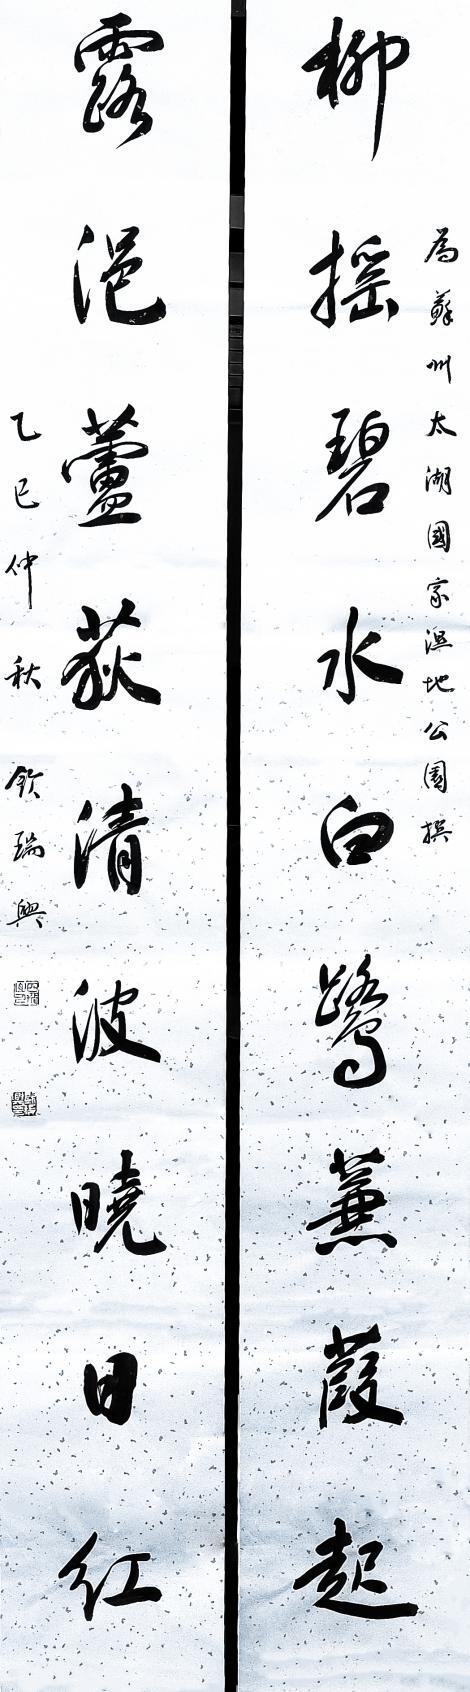 為蘇州太湖國家濕地公園撰
柳搖碧水白鷺蒹葭起
露浥蘆荻清波曉日紅
乙巳仲秋 欽瑞興